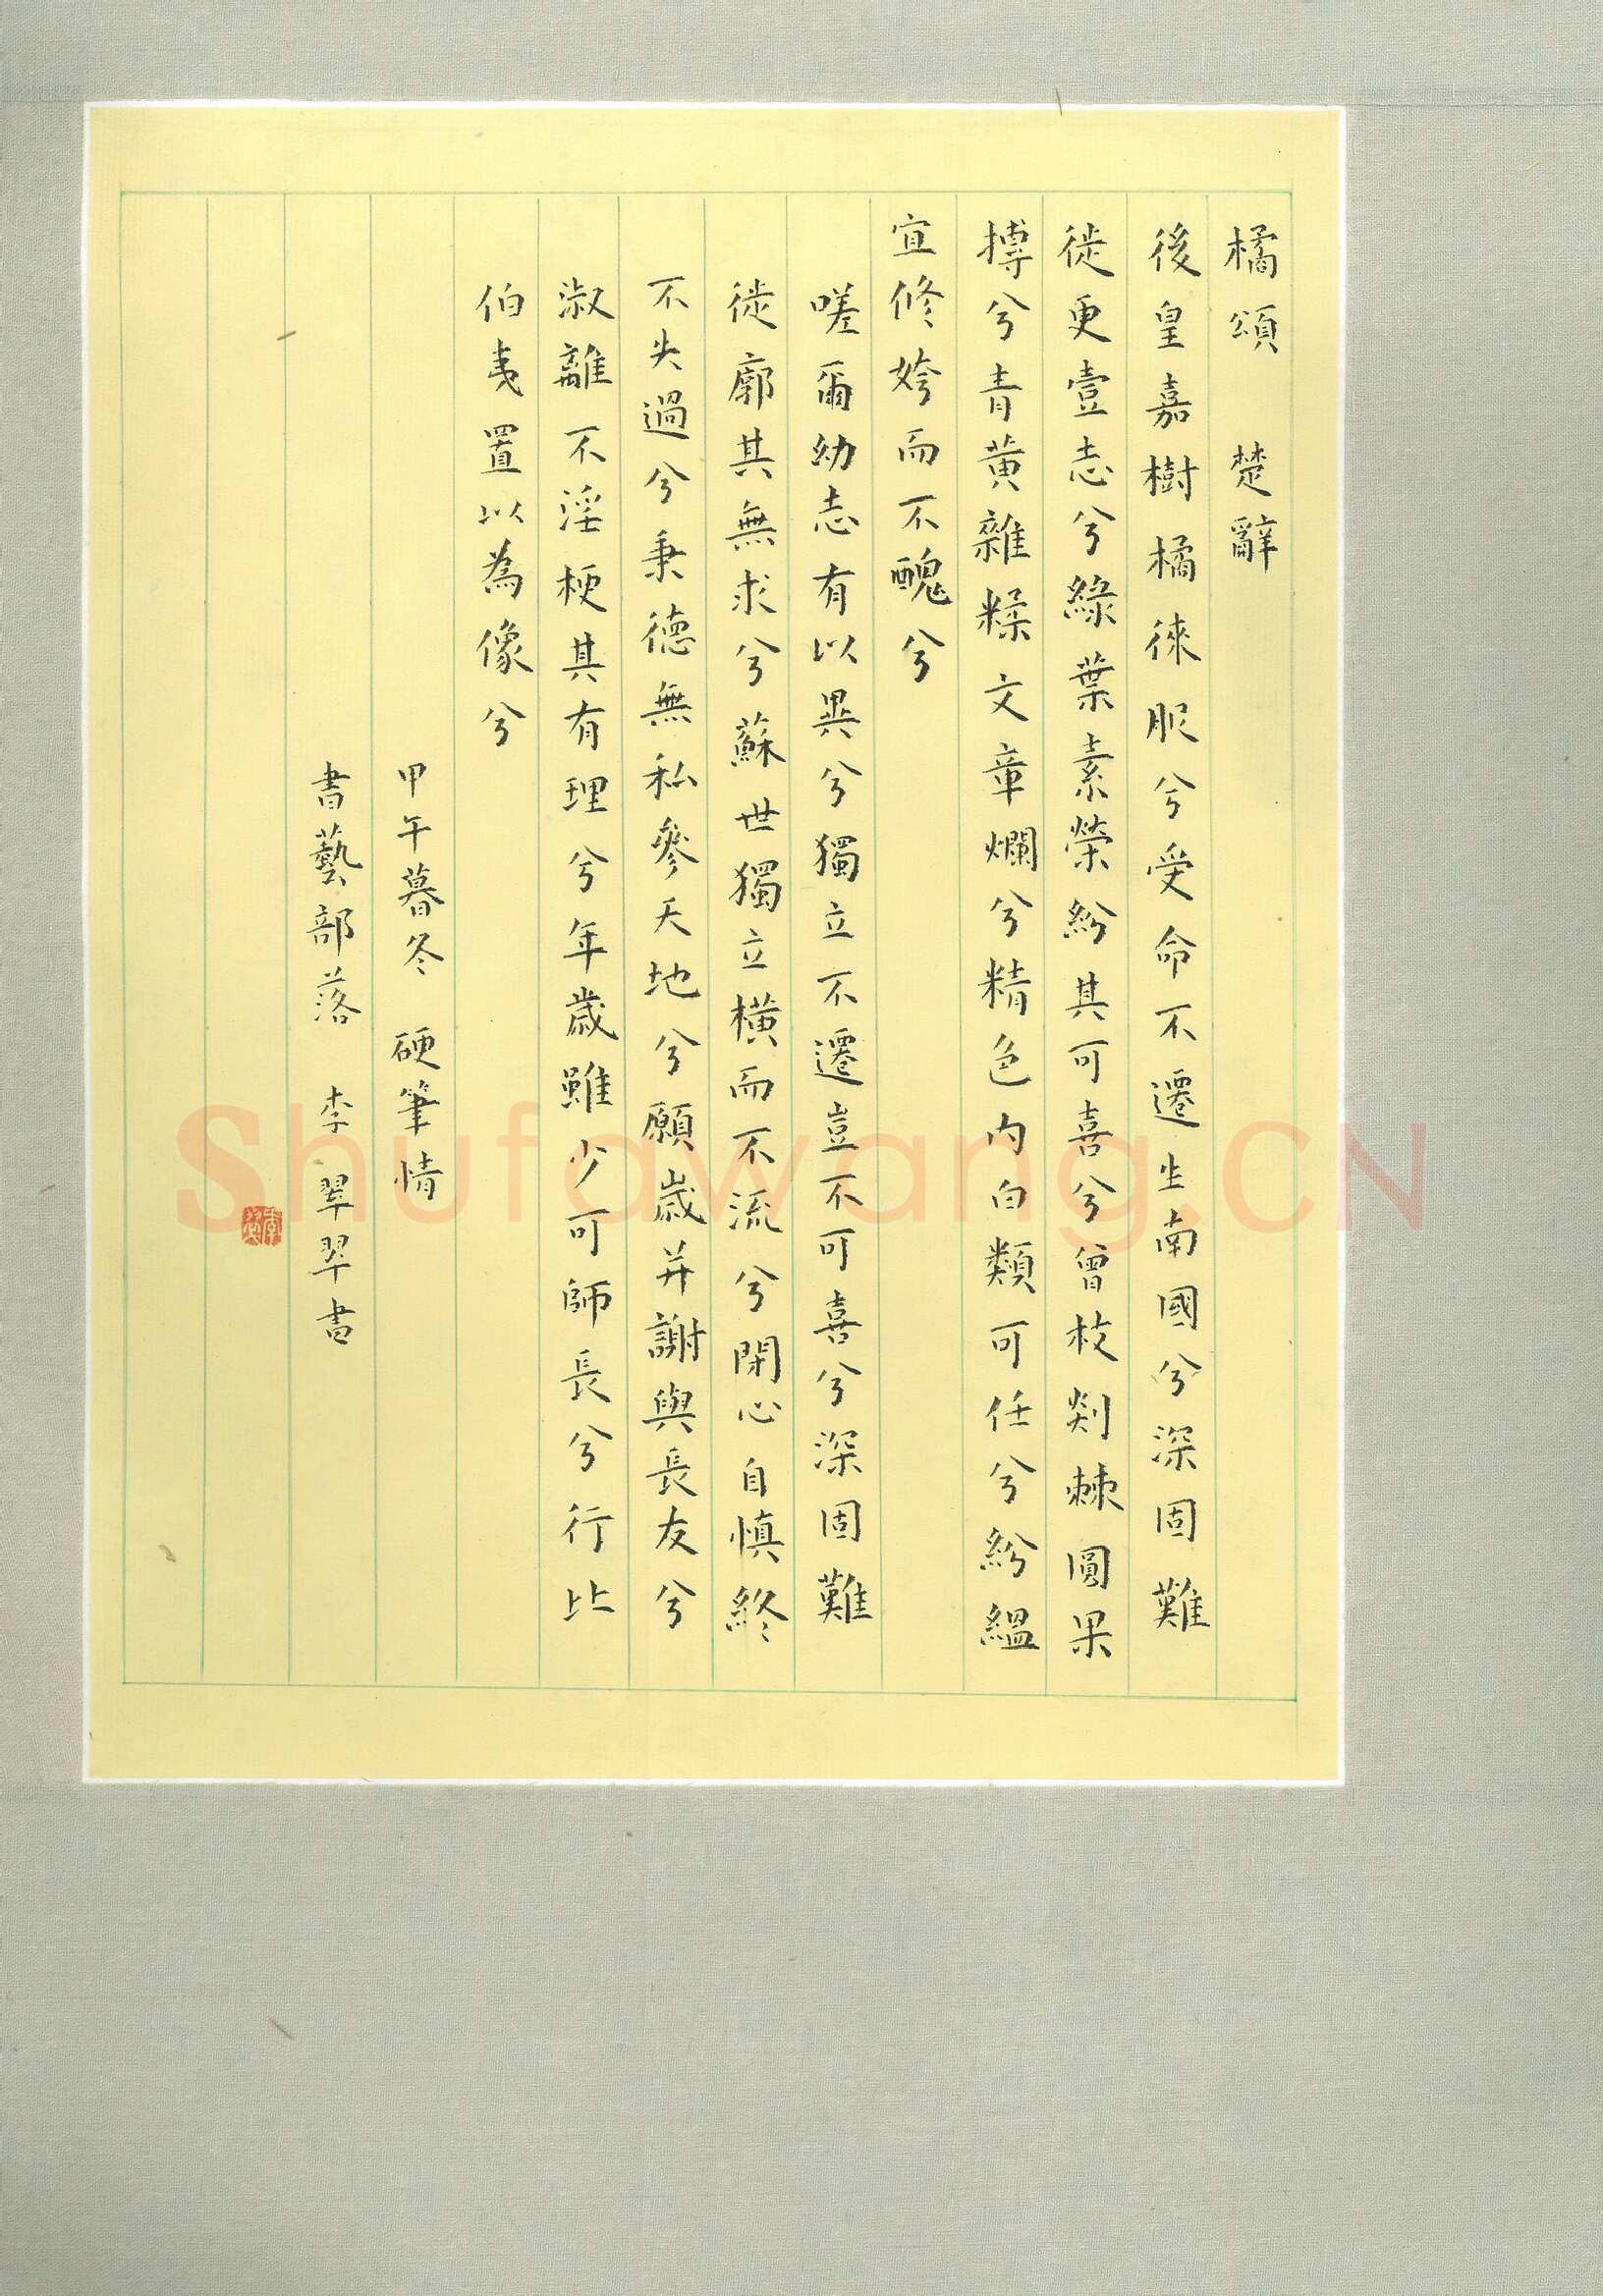 橘頌 楚辭
後皇嘉樹橘徠服兮受命不遷生南國兮深固難
徙更壹志兮綠葉素榮紛其可喜兮曾枝剡棘圓果
摶兮青黃雜糅文章爛兮精色內白類可任兮紛縕
宜修姱而不醜兮
嗟爾幼志有以異兮獨立不遷豈不可喜兮深固難
徙廓其無求兮蘇世獨立橫而不流兮閉心自慎終
不失過兮秉德無私參天地兮願歲并謝與長友兮
淑離不淫梗其有理兮年歲雖少可師長兮行比
伯夷置以為像兮
甲午暮冬 硬筆情
書藝部落 李翠翠書
Shufawang.CN